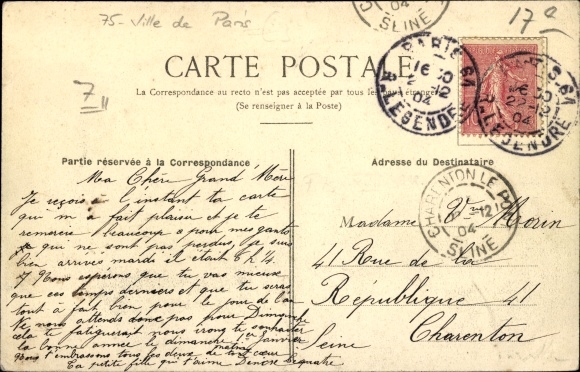 75 - Ville de Paris
17e
7
CARTE POSTALE
La Correspondance au recto n'est pas acceptée par tous les pays étrangers
(Se renseigner à la Poste)
PARIS 61
16 30
2 12
04
R. LEGENDRE
PARIS 61
R. LEGENDRE
04
SEINE
04
Partie réservée à la Correspondance
Adresse du Destinataire
CHARENTON LE PONT
04
SEINE
Ma Chère Grand'Mère
Je reçois à l'instant ta carte
qui m a fait plaisir et je te
remercie beaucoup a pour mes gants
qui ne sont pas perdus, je suis
bien arrivés mardi il était 6h 1/4
Nous espérons que tu vas mieux
que ces temps derniers et que tu seras
tout à fait bien pour le jour de l'an
Ne nous attends donc pas pour Dimanche
cela te fatiguerait nous irons te souhaiter
la bonne année le dimanche matin 1er Janvier
Nous t'embrassons tous les deux de tout cœur
Ta petite fille qui t'aime Denise
Madame Vve Morin
41 Rue de la
République 41
Charenton
Seine